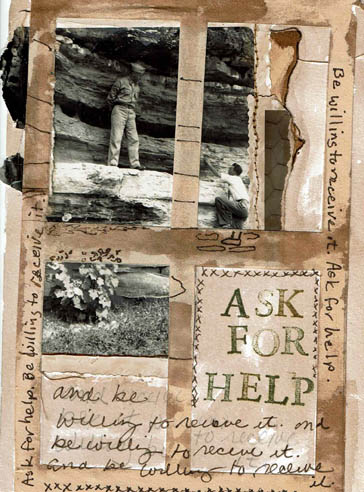 Ask for help. Be willing to receive it.
Be willing to receive it. Ask for help.
ASK
FOR
HELP
and be
willing to receive it. and
be willing to receive it.
and be willing to receive
it.